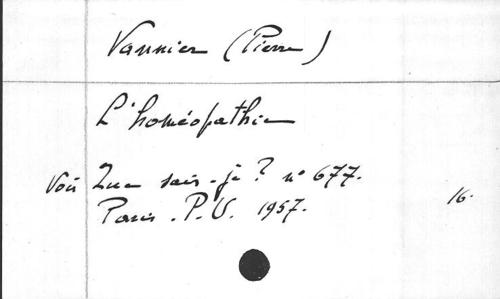 Vannier (Pierre)
L'homéopathie
Voir Que sais-je ? n° 677.
Paris. P.U. 1957. 16.